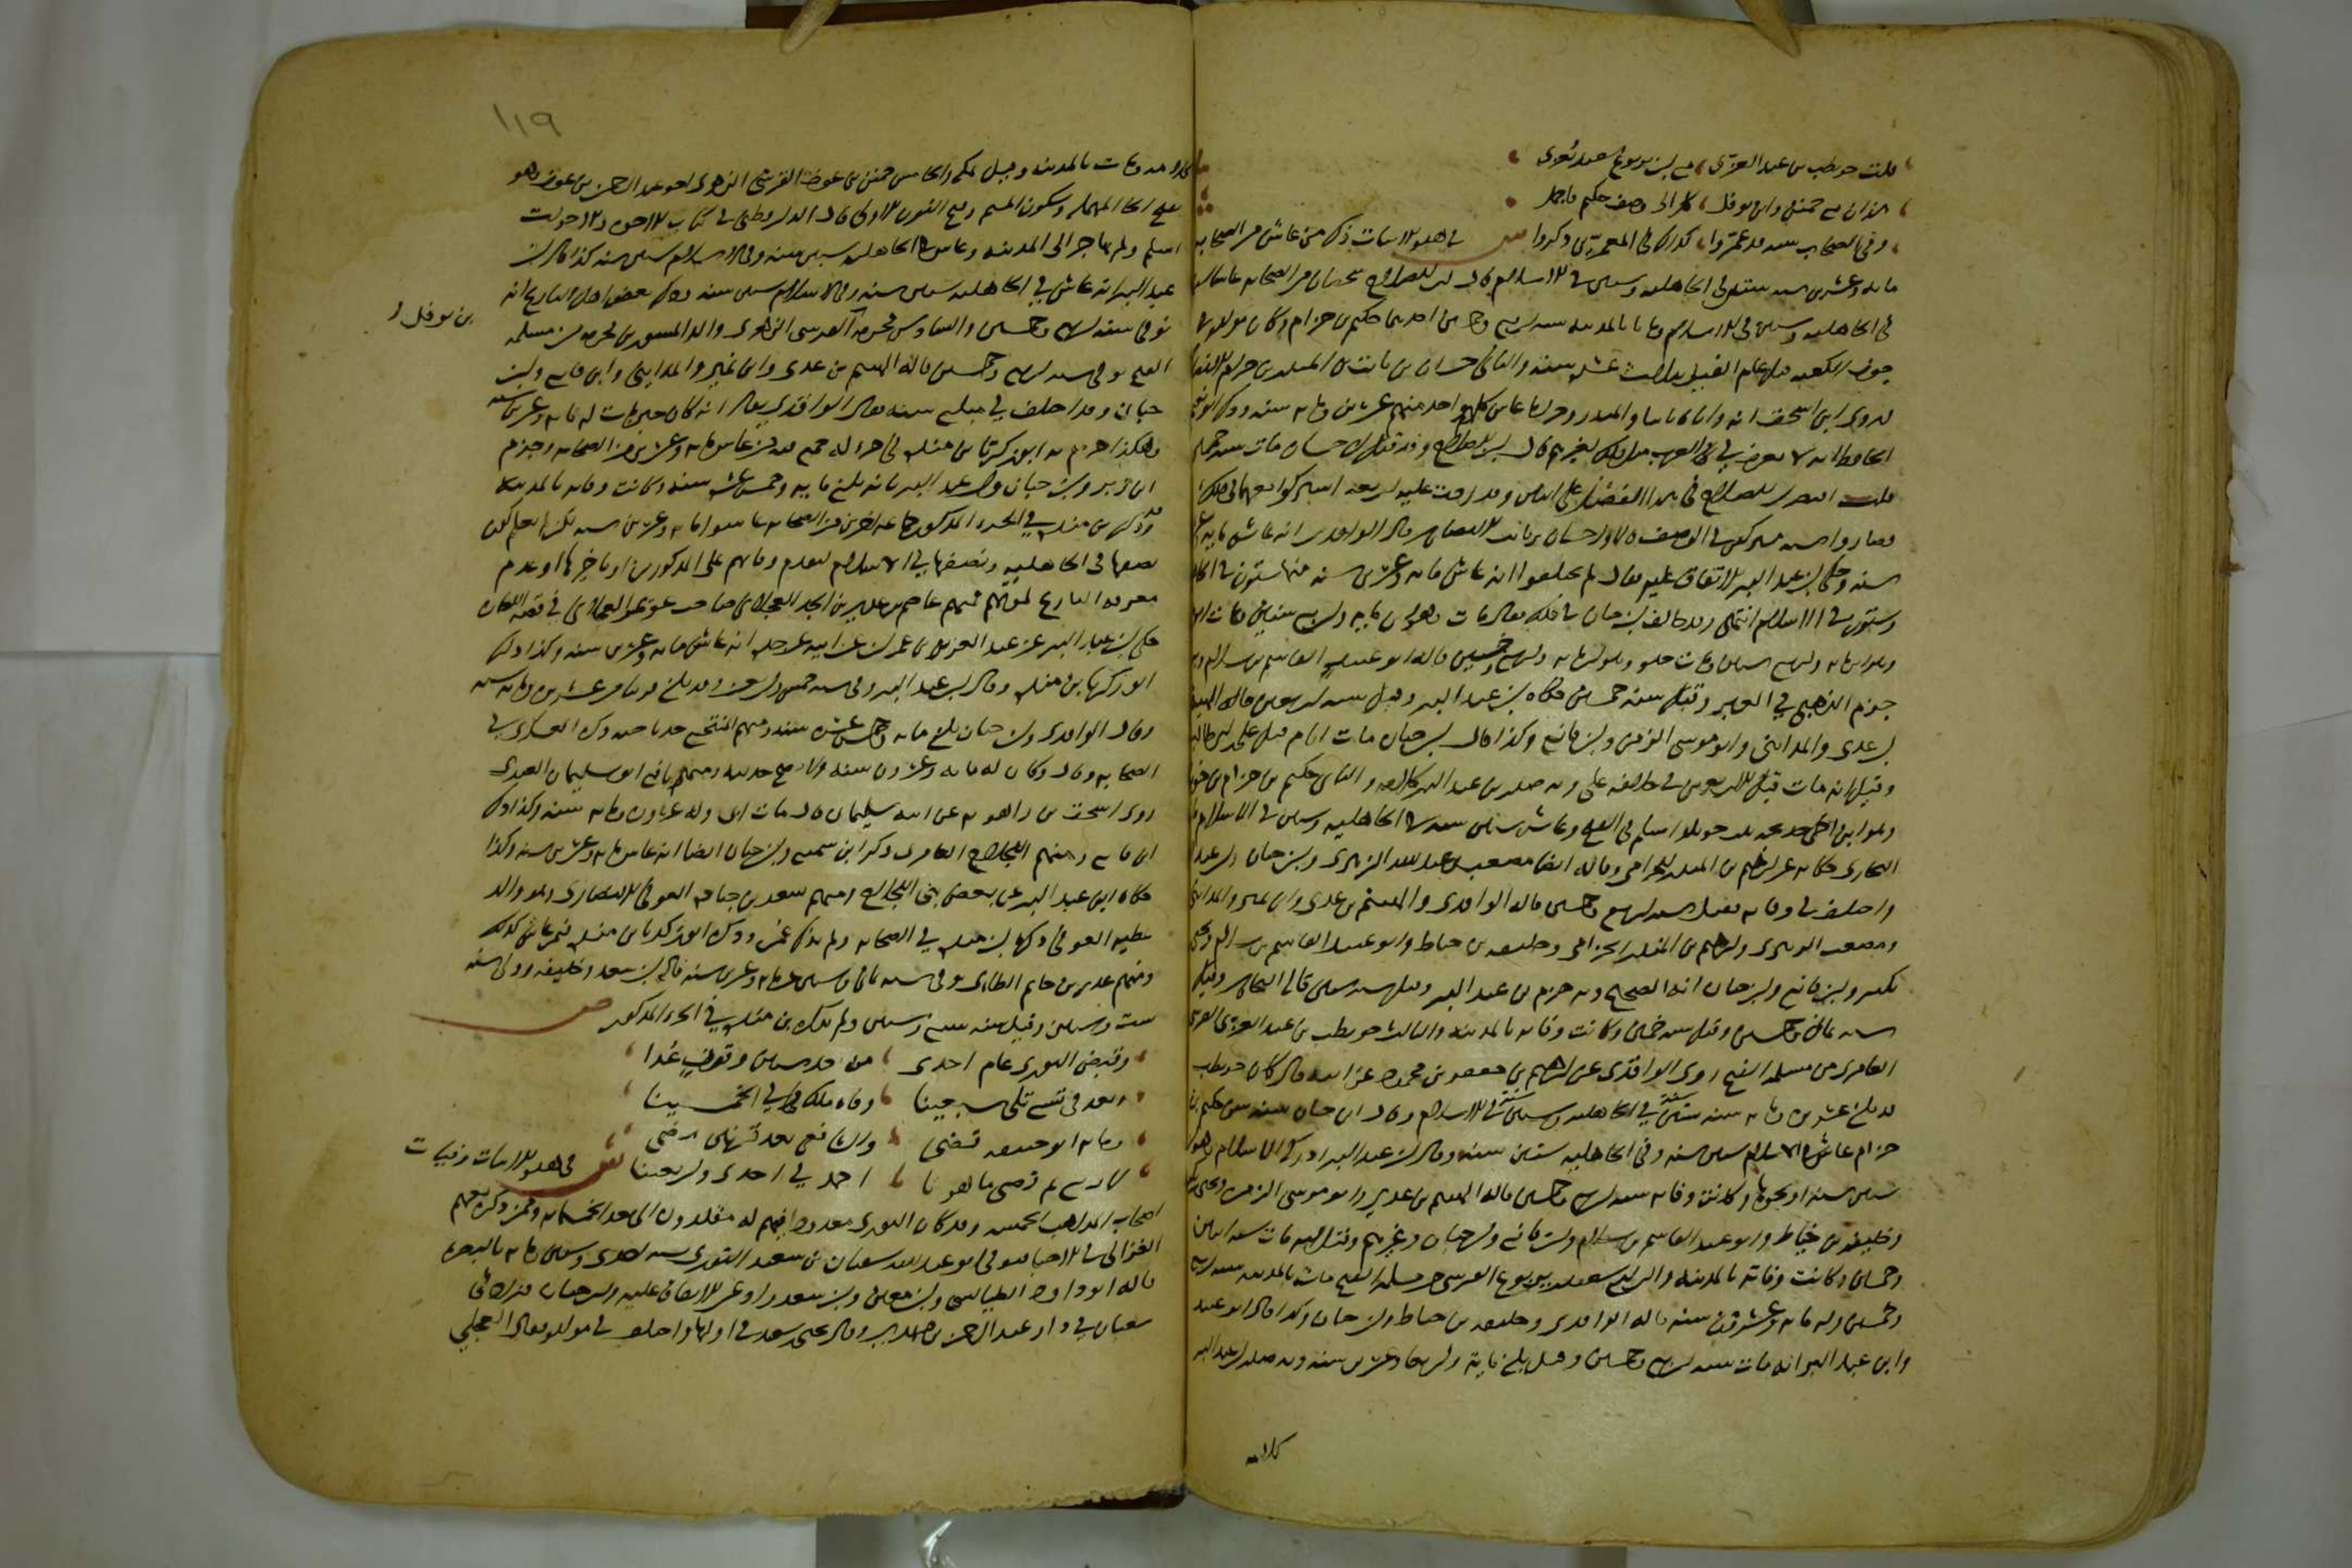 قلت حويطب بن عبد العزى مع ابن يربوع سعيد يعزى
هذان مع حمنن وابن نوفل كل الى وصف حكيم فاجمل
وفي الصحاب ستة قد عمروا كذاك في المعمرين ذكروا
ش في هذه الابيات ذكر من عاش من الصحابة
مائة وعشرين سنة ستين في الجاهلية وستين في الاسلام قال ابن الصلاح شخصان من الصحابة عاشا
في الجاهلية وستين في الاسلام وماتا بالمدينة سنة اربع وخمسين احدهما حكيم بن حزام وكان مولده في
جوف الكعبة قبل عام الفيل بثلاث عشرة سنة والثاني حسان بن ثابت بن المنذر بن حرام الانصاري
روى ابن اسحق انه واباه ثابتا والمنذر وحراما عاش كل واحد منهم عشرين ومائة سنة وذكر ابو نعيم
الحافظ انه لا يعرف في العرب مثل ذلك لغيرهم قال ابن الصلاح وقد قيل ان حسان مات سنة خمسين
قلت اقتصر ابن الصلاح في هذا الفصل على اثنين وقد زدت عليه اربعة اشتركوا معهما في ذلك
فصاروا ستة مشتركين في الوصف فالاول حسان بن ثابت الانصاري قال الواقدي انه عاش مائة
سنة وحكى ابن عبد البر الاتفاق عليه فقال لم يختلفوا انه عاش مائة وعشرين سنة منها ستون في
وستون في الاسلام انتهى وقد خالف ابن حبان في ذلك فقال مات وهو ابن مائة واربع سنين
جزم الذهبي في العبر وقيل سنة خمسين حكاه ابن عبد البر وقيل سنة اربعين قاله الهيثم
بن عدي والمدائني وابو موسى الزمن وابن قانع وكذا قال ابن حبان مات ايام قتل علي بن ابي طالب
وقيل انه مات قبل الاربعين في خلافة علي وبه صدر ابن عبد البر كلامه والثاني حكيم بن حزام بن
وهو ابن اخي خديجة بنت خويلد اسلم في الفتح وعاش ستين سنة في الجاهلية وستين في الاسلام
البخاري حكاه عن ابراهيم بن المنذر الحزامي وقاله ايضا مصعب بن عبد الله الزبيري وابن حبان وابن عبد
واختلف في وفاته فقيل سنة اربع وخمسين قاله الواقدي والهيثم بن عدي وابن نمير والمدائني
ومصعب الزبيري وابراهيم بن المنذر الحزامي وخليفة بن خياط وابو عبيد القاسم بن سلام ويحيى
بكير وابن قانع وابن حبان انه الصحيح وبه جزم ابن عبد البر وقيل سنة ستين قاله البخاري وقيل
سنة ثمان وخمسين وقيل سنة خمسين وكانت وفاته بالمدينة والثالث حويطب بن عبد العزى القرشي
العامري من مسلمة الفتح روى الواقدي عن ابراهيم بن جعفر بن محمود عن ابيه قال كان حويطب
قد بلغ عشرين ومائة سنة ستين في الجاهلية وستين في الاسلام وقال ابن حبان سنه سن حكيم بن
حزام عاش في الاسلام ستين سنة وفي الجاهلية ستين سنة وقال ابن عبد البر ادرك الاسلام وهو ابن
ستين سنة او نحوها وكانت وفاته سنة اربع وخمسين قاله الهيثم بن عدي وابو موسى الزمن ويحيى بن
وخليفة بن خياط وابو عبيد القاسم بن سلام وابن قانع وابن حبان وغيرهم وقيل انه مات سنة اثنين
وخمسين وكانت وفاته بالمدينة والرابع سعيد بن يربوع القرشي من مسلمة الفتح مات بالمدينة سنة اربع
وخمسين وله مائة وعشرون سنة قاله الواقدي وخليفة بن خياط وابن حبان وكذا قال ابو عبيد
وابن عبد البر انه مات سنة اربع وخمسين وقيل بلغ مائة واربعا وعشرين سنة وبه صدر ابن عبد البر
كلامه
١١٩
كلامه ومات بالمدينة وقيل بمكة والخامس حمنن بن عوف القرشي الزهري اخو عبد الرحمن بن عوف وهو
بفتح الحاء المهملة وسكون الميم وفتح النون الاولى قال الدارقطني في كتاب الاخوة والاخوات
اسلم ولم يهاجر الى المدينة وعاش في الجاهلية ستين سنة وفي الاسلام ستين سنة كذا قال ابن
عبد البر انه عاش في الجاهلية ستين سنة وفي الاسلام ستين سنة وذكر بعض اهل التاريخ انه
توفي سنة اربع وخمسين والسادس مخرمة بن نوفل القرشي الزهري والد المسور بن مخرمة من مسلمة
الفتح توفي سنة اربع وخمسين قاله الهيثم بن عدي وابن نمير والمدائني وابن قانع وابن
حبان وقد اختلف في مبلغ سنه فقال الواقدي يقال انه كان حين مات له مائة وعشرين سنة
وهكذا جزم به ابو زكريا بن منده في جزء له جمع فيه من عاش مائة وعشرين من الصحابة وجزم
ابن زبر وابن حبان وابن عبد البر بانه بلغ مائة وخمس عشرة سنة وكانت وفاته بالمدينة
وقد ذكر ابن منده في الجزء المذكور جماعة اخرين من الصحابة عاشوا مائة وعشرين سنة لكن لم يعلم كون
نصفها في الجاهلية ونصفها في الاسلام لتقدم وفاتهم على المذكورين او تاخرها او عدم
معرفة التاريخ لموتهم فمنهم عاصم بن عدي بن الجد العجلاني صاحب عويمر العجلاني في قصة اللعان
حكى ابن عبد البر عن عبد العزيز بن عمران عن ابيه عن جده انه عاش مائة وعشرين سنة وكذا ذكر
ابو زكريا بن منده وقال ابن عبد البر توفي سنة خمس واربعين وقد بلغ قريبا من عشرين ومائة سنة
وقال الواقدي وابن حبان بلغ مائة وخمس عشرة سنة ومنهم المنتجع جد ناجية ذكره العسكري في
الصحابة وقال كان له مائة وعشرون سنة ولا يصح حديثه ومنهم نافع ابو سليمان العبدي
روى اسحق بن راهويه عن ابنه سليمان قال مات ابي وله عشرون ومائة سنة وكذا ذكر
ابن قانع ومنهم اللجلاج العامري ذكر ابن سميع وابن حبان ايضا انه عاش مائة وعشرين سنة وكذا
حكاه ابن عبد البر عن بعض بني اللجلاج ومنهم سعد بن جنادة العوفي الانصاري وهو والد
عطية العوفي ذكره ابن منده في الصحابة ولم يذكر عمره وذكره ابو زكريا بن منده فيمن عاش كذلك
ومنهم عدي بن حاتم الطائي توفي سنة ثمان وستين عن مائة وعشرين سنة قاله ابن سعد وخليفة وقيل سنة
ست وستين وقيل سنة سبع وستين ولم يذكره ابن منده في الجزء المذكور ص
وقبض الثوري عام احدى من بعد ستين وقرن عدا
وبعد في تسع تلي سبعينا وفاة مالك وفي الخمسينا
ومائة ابو حنيفة قضى والشافعي بعد قرنين مضى
لاربع ثم قضى مأمونا احمد في احدى واربعينا ش في هذه الابيات وفيات
اصحاب المذاهب الخمسة وقد كان الثوري معدودا فيهم له مقلدون الى بعد الخمسمائة وممن ذكره معهم
الغزالي في الاحيا فتوفي ابو عبد الله سفيان بن سعيد الثوري سنة احدى وستين ومائة بالبصرة
قاله ابو داود الطيالسي وابن معين وابن سعد وادعى الاتفاق عليه وابن حبان
سفيان في دار عبد الرحمن بن مهدي وقال يحيى بن سعيد في اولها واختلف في مولده فقال العجلي
بن نوفل